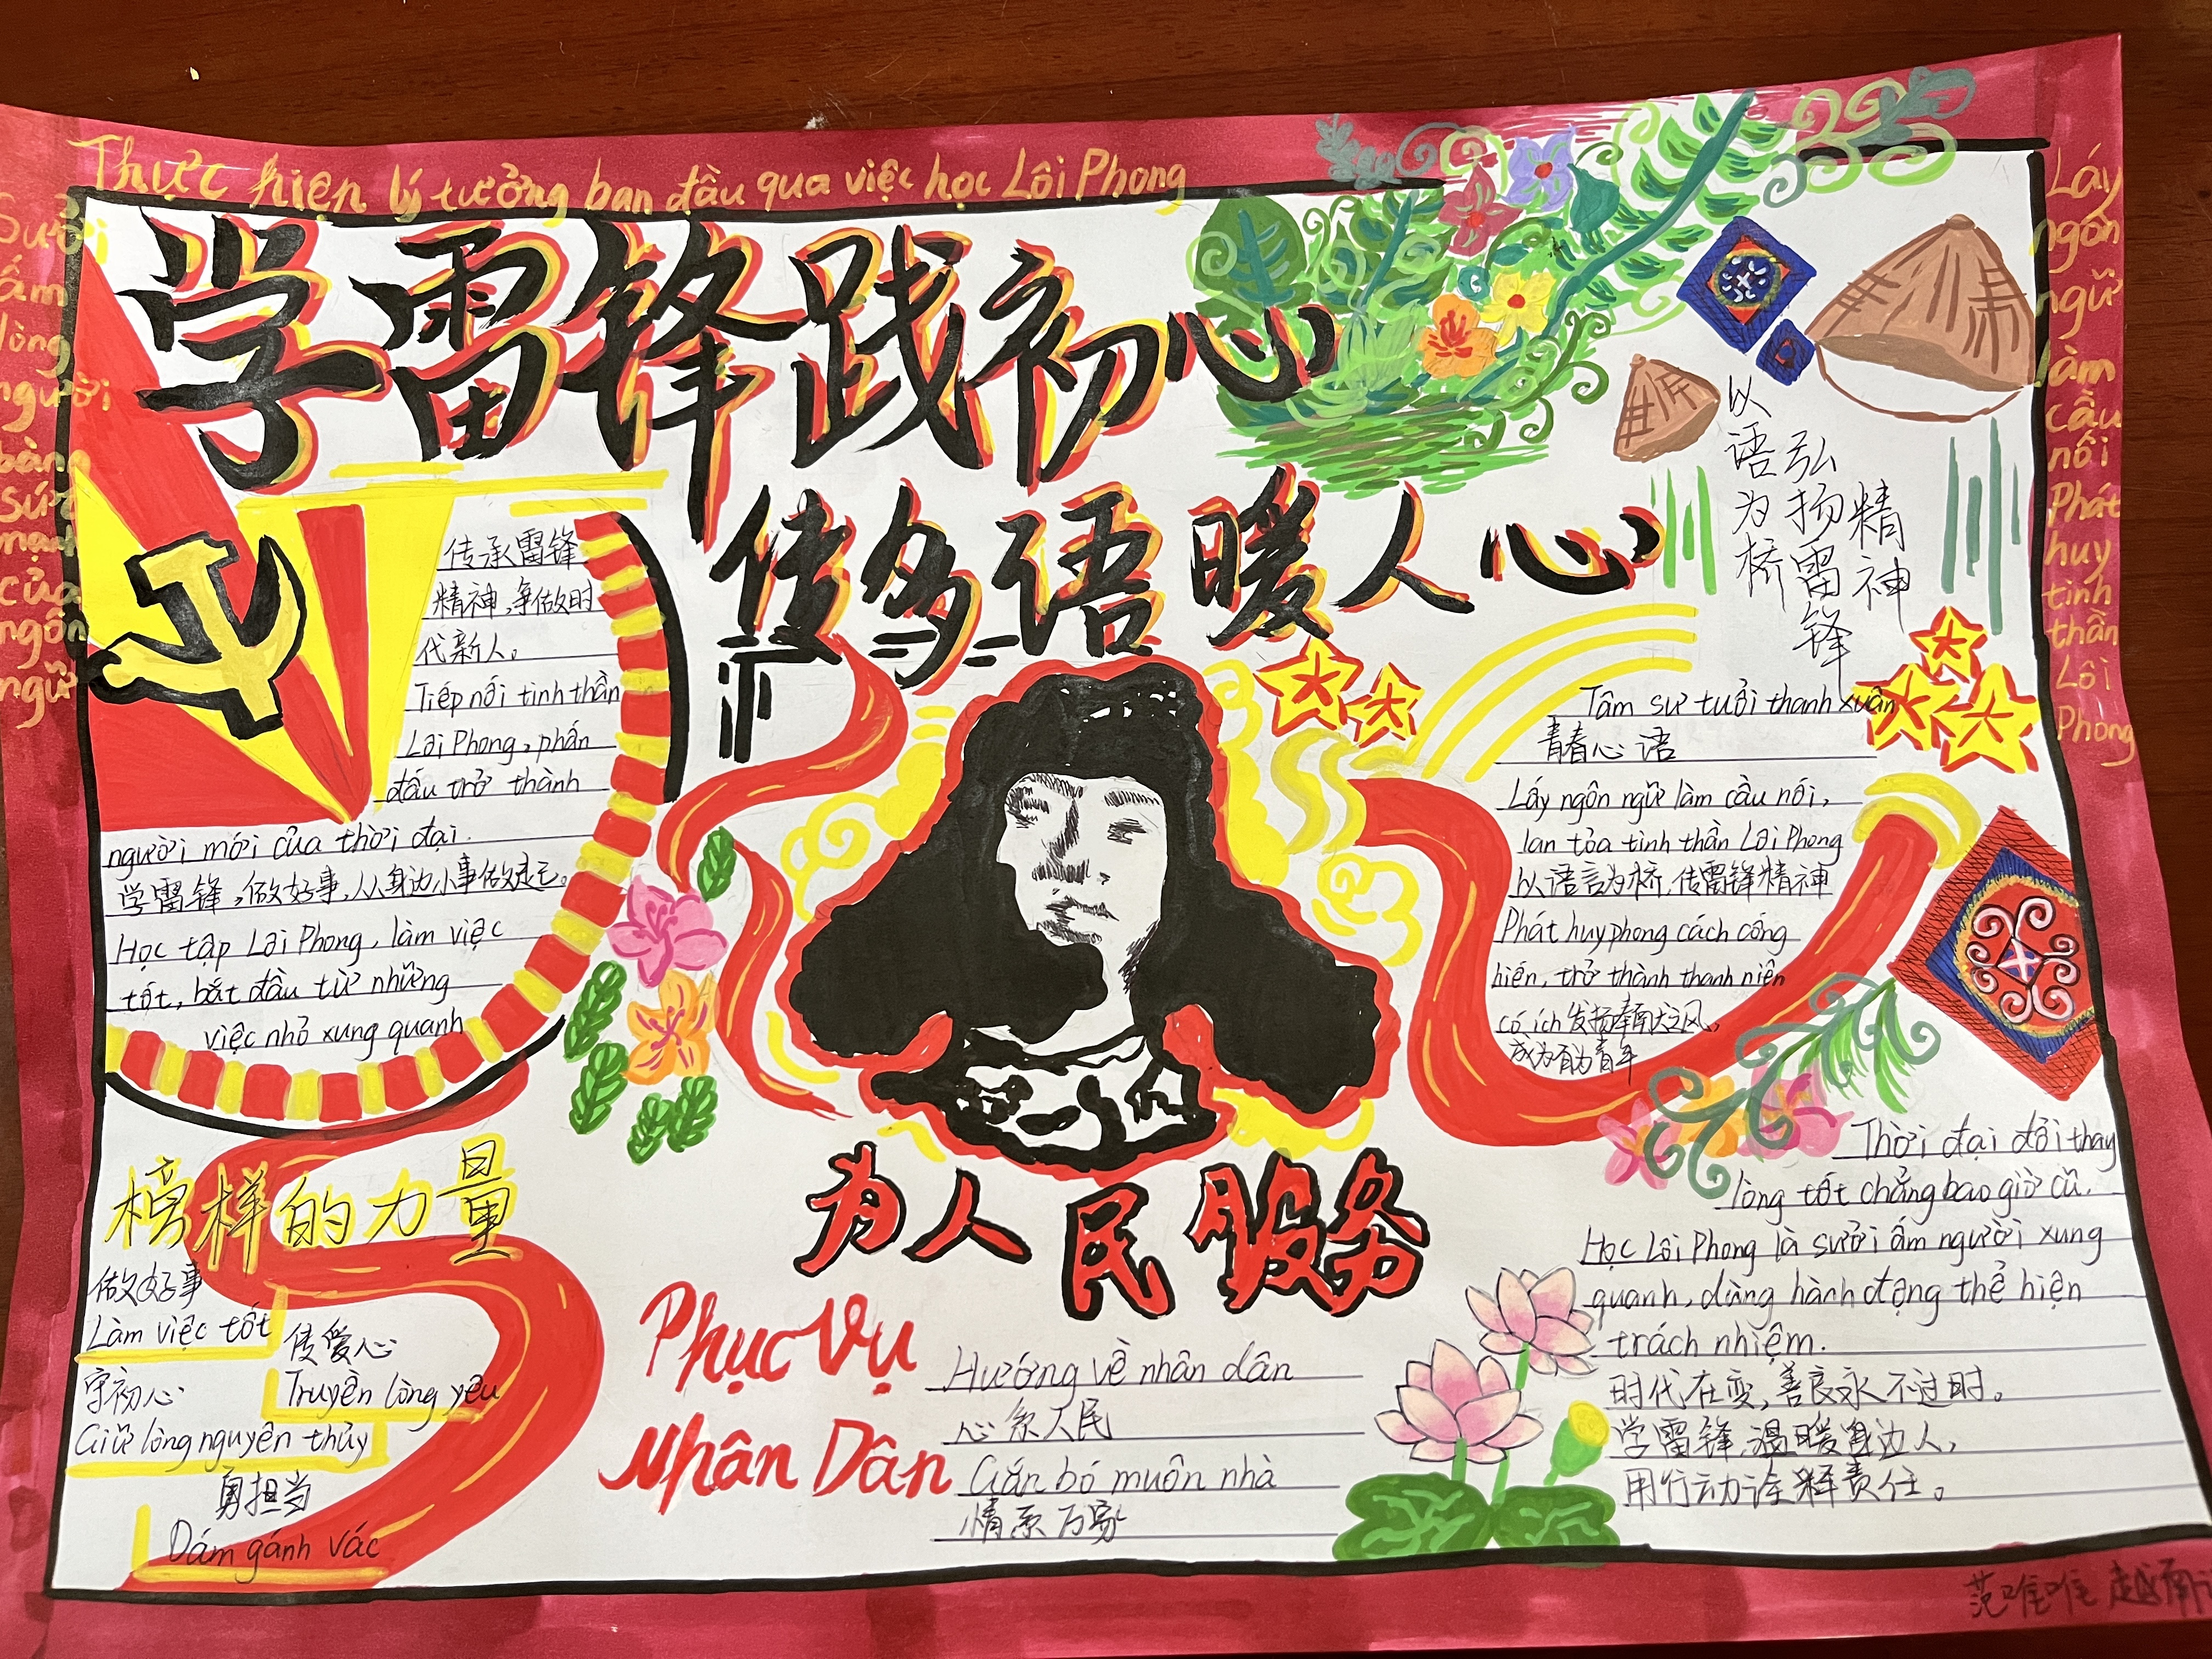 Thực hiện lý tưởng ban đầu qua việc học Lôi Phong
Sưởi
ấm
lòng
người
bằng
sức
mạnh
của
ngôn
ngữ
学雷锋践初心
传多语暖人心
传承雷锋
精神,争做时
代新人。
Tiếp nối tinh thần
Lôi Phong, phấn
đấu trở thành
người mới của thời đại.
学雷锋,做好事,从身边小事做起。
Học tập Lôi Phong, làm việc
tốt, bắt đầu từ những
việc nhỏ xung quanh
榜样的力量
做好事
Làm việc tốt
传爱心
Truyền lòng yêu
守初心
Giữ lòng nguyên thủy
勇担当
Dám gánh vác
为人民服务
Phục Vụ
Nhân Dân
Hướng về nhân dân
心系人民
Gắn bó muôn nhà
情系万家
以语为桥
弘扬雷锋
精神
Tâm sự tuổi thanh xuân
青春心语
Lấy ngôn ngữ làm cầu nối,
lan tỏa tinh thần Lôi Phong
以语言为桥,传雷锋精神
Phát huy phong cách cống
hiến, trở thành thanh niên
có ích 发扬奉献之风,
成为有为青年
Thời đại đổi thay
lòng tốt chẳng bao giờ cũ.
Học Lôi Phong là sưởi ấm người xung
quanh, dùng hành động thể hiện
trách nhiệm.
时代在变,善良永不过时。
学雷锋,温暖身边人,
用行动诠释责任。
Lấy
ngôn
ngữ
làm
cầu
nối
Phát
huy
tinh
thần
Lôi
Phong
范唯唯 越南语